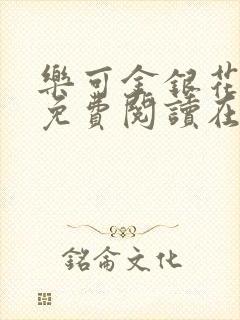 樂可金銀花
免費閱讀在
銘侖文化